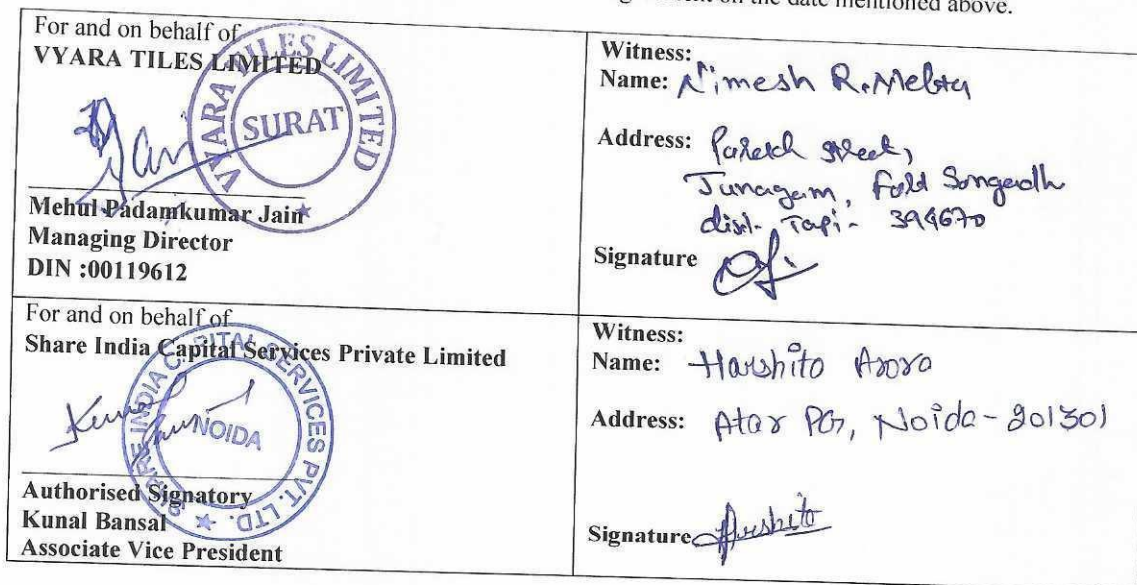 on the date mentioned above.
For and on behalf of
VYARA TILES LIMITED
VYARA TILES LIMITED
SURAT
Mehul Padamkumar Jain
Managing Director
DIN :00119612
Witness:
Name: Nimesh R. Mehta
Address: street,
Junagam, Fort Songadh
dist- Tapi- 394670
Signature
For and on behalf of
Share India Capital Services Private Limited
SHARE INDIA CAPITAL SERVICES PVT. LTD.
NOIDA
Kunal
Authorised Signatory
Kunal Bansal
Associate Vice President
Witness:
Name: Harshita Arora
Address: Atar PG, Noida-201301
Signature Harshita